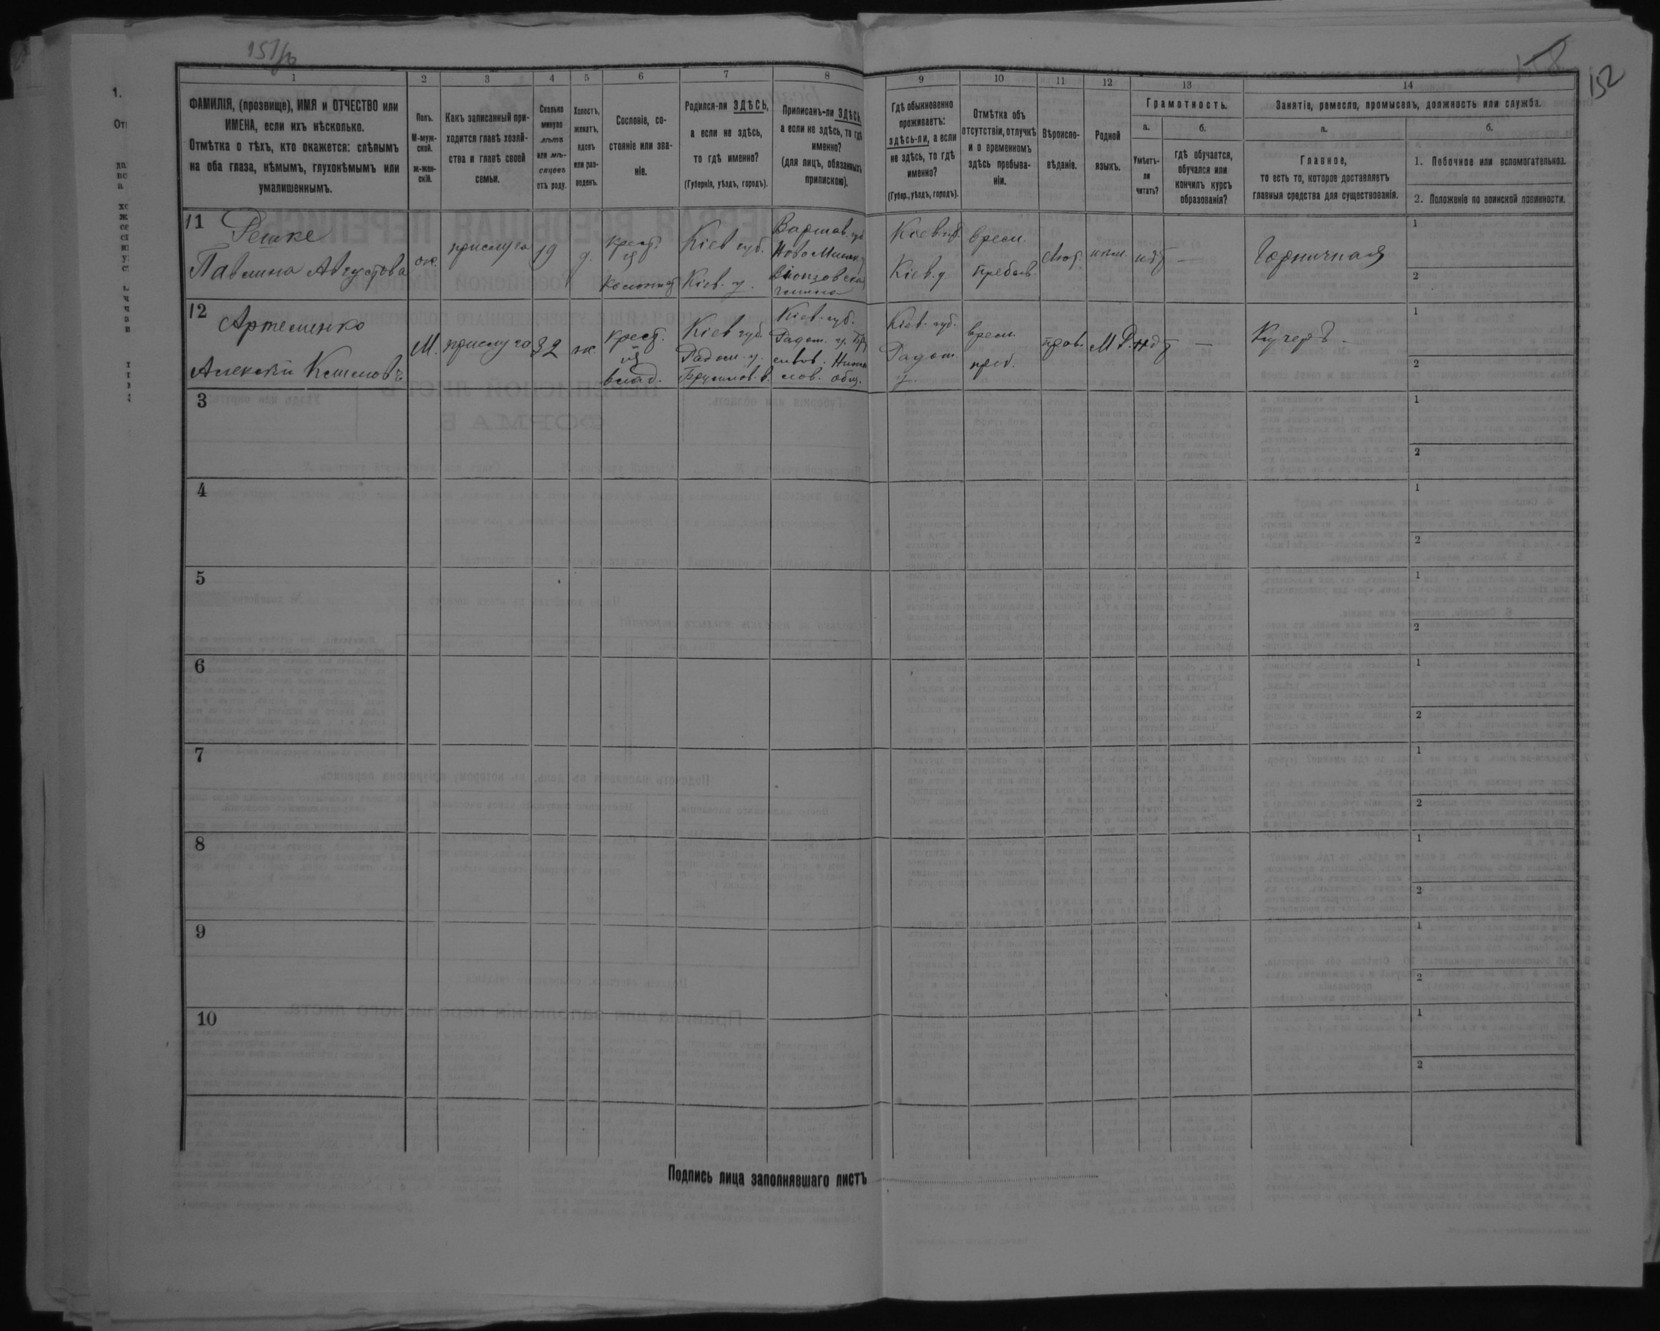 151/б
158
152
1 2 3 4 5 6 7 8 9 10 11 12 13 14
ФАМИЛІЯ, (прозвище), ИМЯ и ОТЧЕСТВО или
ИМЕНА, если ихъ нѣсколько.
Отмѣтка о тѣхъ, кто окажется: слѣпымъ
на оба глаза, нѣмымъ, глухонѣмымъ или
умалишеннымъ.
Полъ.
М-муж-
ской.
ж-жен-
скій.
Какъ записанный при-
ходится главѣ хозяй-
ства и главѣ своей
семьи.
Сколько
минуло
лѣтъ
или мѣ-
сяцевъ
отъ роду.
Холостъ,
женатъ,
вдовъ
или раз-
веденъ.
Сословіе, со-
стояніе или зва-
ніе.
Родился-ли ЗДѢСЬ,
а если не здѣсь,
то гдѣ именно?
(Губернія, уѣздъ, городъ).
Приписанъ-ли ЗДѢСЬ,
а если не здѣсь, то гдѣ
именно?
(для лицъ, обязанныхъ
припискою).
Гдѣ обыкновенно
проживаетъ:
здѣсь-ли, а если
не здѣсь, то гдѣ
именно?
(Губер., уѣздъ, городъ).
Отмѣтка объ
отсутствіи, отлучкѣ
и о временномъ
здѣсь пребыва-
ніи.
Вѣроиспо-
вѣданіе.
Родной
языкъ.
Грамотность.
а.
Умѣетъ-
ли
читать?
б.
гдѣ обучается,
обучался или
кончилъ курсъ
образованія?
Занятіе, ремесло, промыселъ, должность или служба.
а.
Главное,
то есть то, которое доставляетъ
главныя средства для существованія.
б.
1. Побочное или вспомогательное.
2. Положеніе по воинской повинности.
11
Решке
Павлина Августова
ж.
прислуга
19
д.
крест.
колонист
Кіев губ.
Кіев. у.
Варшав гу
НовоМинск
гмина
Кіев губ.
Кіев. у
врем.
пребыв
Лют.
нем.
нѣт
—
Горничная
1
2
12
Артеменко
Алексѣй
М.
прислуга
32
ж.
крест.
из
влад.
Кіев губ.
Радом. у.
Брусилов в.
Кіев. губ.
Радом. у. Бру
силов.
лов. общ.
Кіев. губ.
Радом.
у.
врем.
преб.
прав.
М Р.
нѣт
—
Кучеръ.
1
2
3
1
2
4
1
2
5
1
2
6
1
2
7
1
2
8
1
2
9
1
2
10
1
2
Подпись лица заполнявшаго листъ